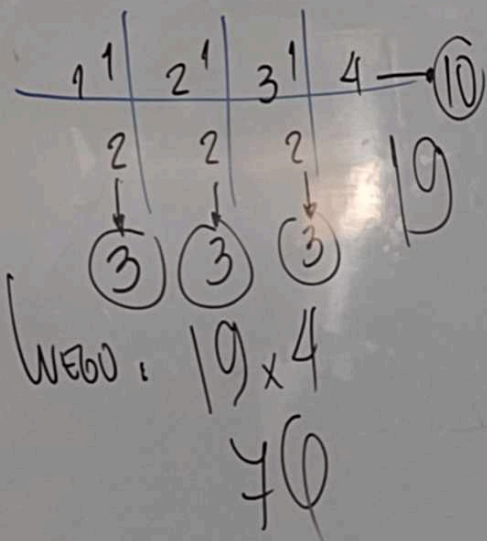 1 1 2 1 3 1 4 → 10
2 2 2 19
3 3 3
LUEGO: 19 x 4
76